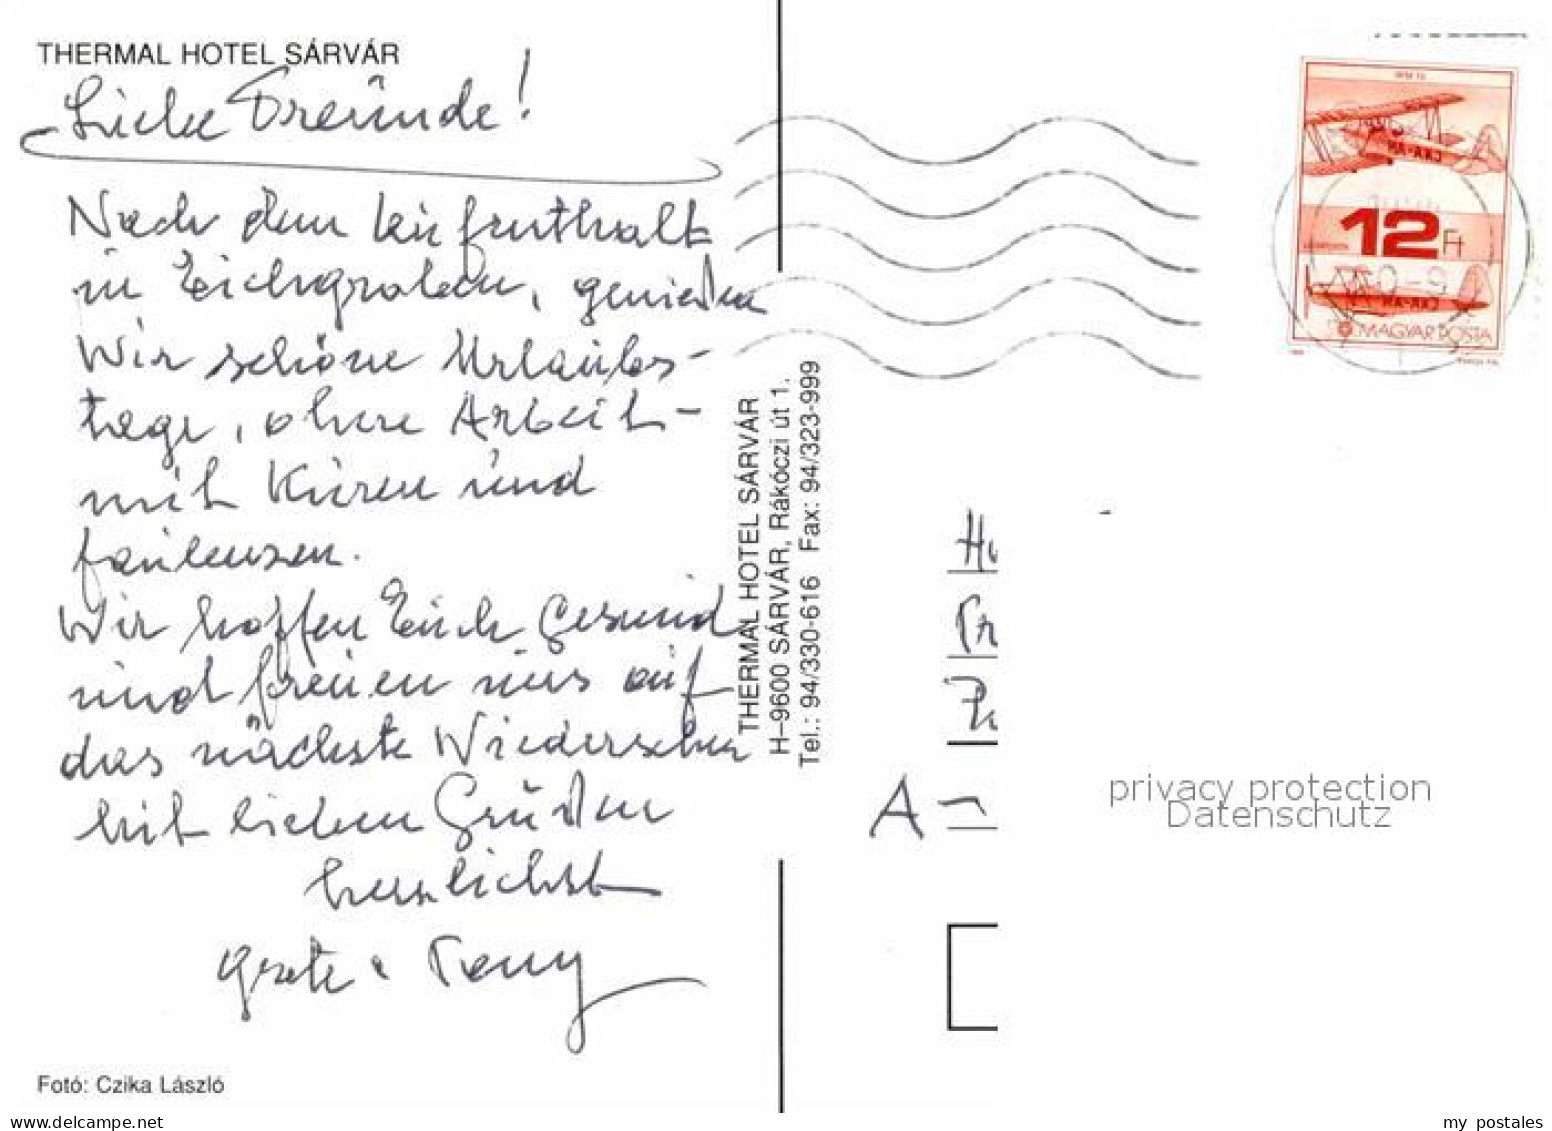 THERMAL HOTEL SÁRVÁR
Liebe Freunde!
Nach dem
in Eichgraben, genießen
Wir schöne Urlaubs-
tage, ohne Arbeit-
mit Kuren und
faulenzen.
Wir hoffen Euch Gesund
und freuen uns auf
das nächste Wiedersehen
mit lieben Grüßen
herzlichst
Grete & Tony
Fotó: Czika László
THERMAL HOTEL SÁRVÁR
H–9600 SÁRVÁR, Rákóczi út 1.
Tel.: 94/330-616 Fax: 94/323-999
WM 13
HA-AAJ
12 Ft
HA-AAJ
MAGYAR POSTA
A –
privacy protection
Datenschutz
www.delcampe.net
my_postales